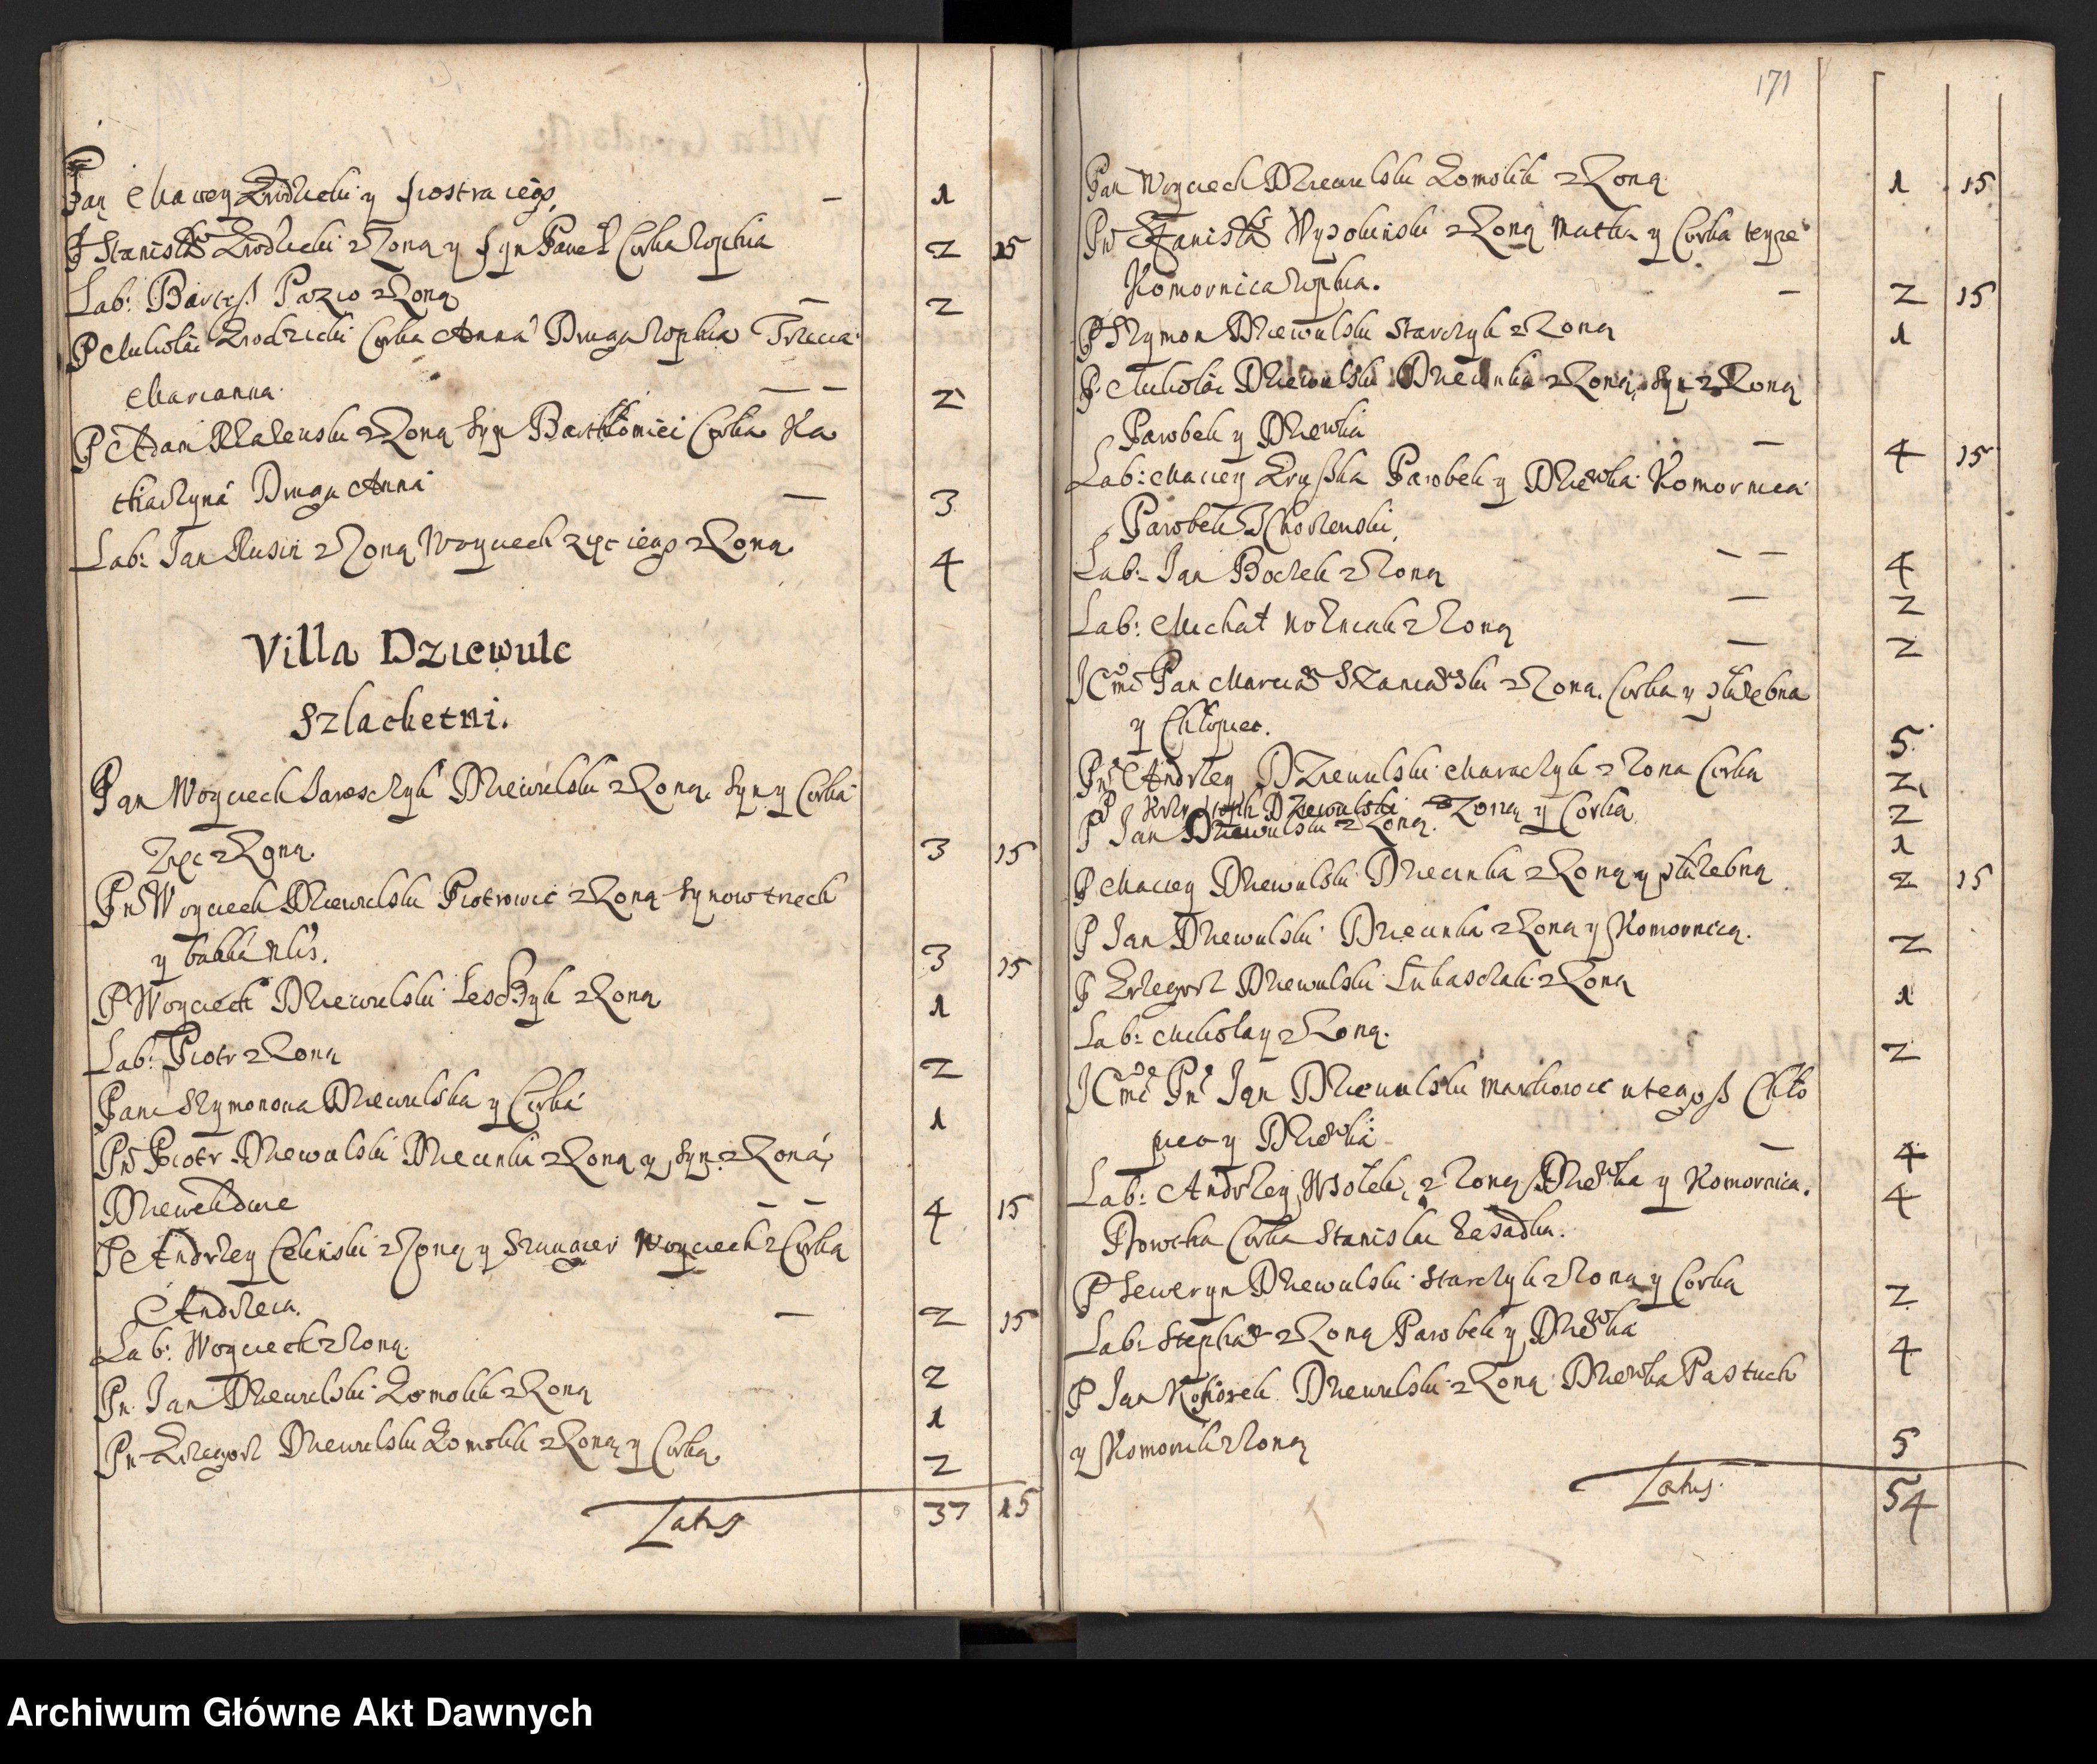 Pan Maciey Grodzicki y siostra iego — 1
P Stanisław Grodzicki z Zoną y syn Paweł Corka Zophia 2 15
Lab: Bartosz Pazio z Zoną — 2
P Mikołai Grodzicki Corka Anna Druga Zophia Trzecia
Marianna — — 2
P Adam Zalewski z Zoną Syn Barthłomiei Corka Ka
tharzyna Druga Anna — 3
Lab: Jan Rusin z Zoną Woyciech zięc iego z Zoną 4
Villa Dziewule
Szlachetni.
Pan Woyciech Dziewulski z Zoną Syn y Corka
Zięc z Zoną 3 15
Pn Woyciech Dziewulski Piotrowic z Zoną Synow trzech
y babka 3 15
P Woyciech Dziewulski Lesczyk z Zoną 1
Lab: Piotr z Zoną 2
Pani Szymonowa Dziewulska y Corka 1
Pn Piotr Dziewulski Dziecinka z Zoną y Syn z Zoną,
Dziewki dwie — — 4 15
P Andrzey Celinski z Zoną y Woyciech z Corką
Andrzeia. — 2 15
Lab: Woyciech z Zoną. 2
Pn Jan Dziewulski Gomolik z Zoną 1
Pn Grzegorz Dziewulski Gomolik z Zoną y Corką 2
Latus 37 15
171
Pan Woyciech Dziewulski Gomolik z Zoną 1 15
Pn Stanisław Wysokinski z Zoną Matka y Corka teyze
Komornica Zophia. — 2 15
P Szymon Dziewulski Starczyk z Zoną 1
P Mikołai Dziewulski Dziecinka z Zoną, Syn z Zoną
Parobek y Dziewka — 4 15
Lab: Maciey Gruszka Parobek y Dziewka Komornica
Parobek — — 4
Lab: Jan Bociek z Zoną — 2
Lab: Michał Nozniak z Zoną — 2
JCmc Pan Marcian Szaniawski z Zoną, Corka y słuzebna
y Chłopiec. 5
Pn Andrzey Dziewulski Maraczyk z Zona Corka 2
P Krzysztoph Dziewulski z Zoną y Corka 2
P Jan Dziewulski z Zoną. 1
P Maciey Dziewulski Dziecinka z Zoną y słuzebną 2 15
P Jan Dziewulski Dziecinka z Zoną y Komornicą. 2
P Grzegorz Dziewulski Łukasczak z Zoną 1
Lab: Mikołay z Zoną. 2
JCmc Pn Jan Dziewulski Markowic u tegosz Chło
piec y Dziewka — 4
Lab: Andrzey Wsołek, z Zoną Dziewka y Komornica. 4
Corka Stanisław
P Seweryn Dziewulski Starczyk z Zoną y Corką 2
Lab: Stephan z Zoną Parobek y Dziewka 4
P Jan Dziewulski z Zoną Dziewka Pastuch
y Komornik z Zoną 5
Latus 54
Archiwum Główne Akt Dawnych